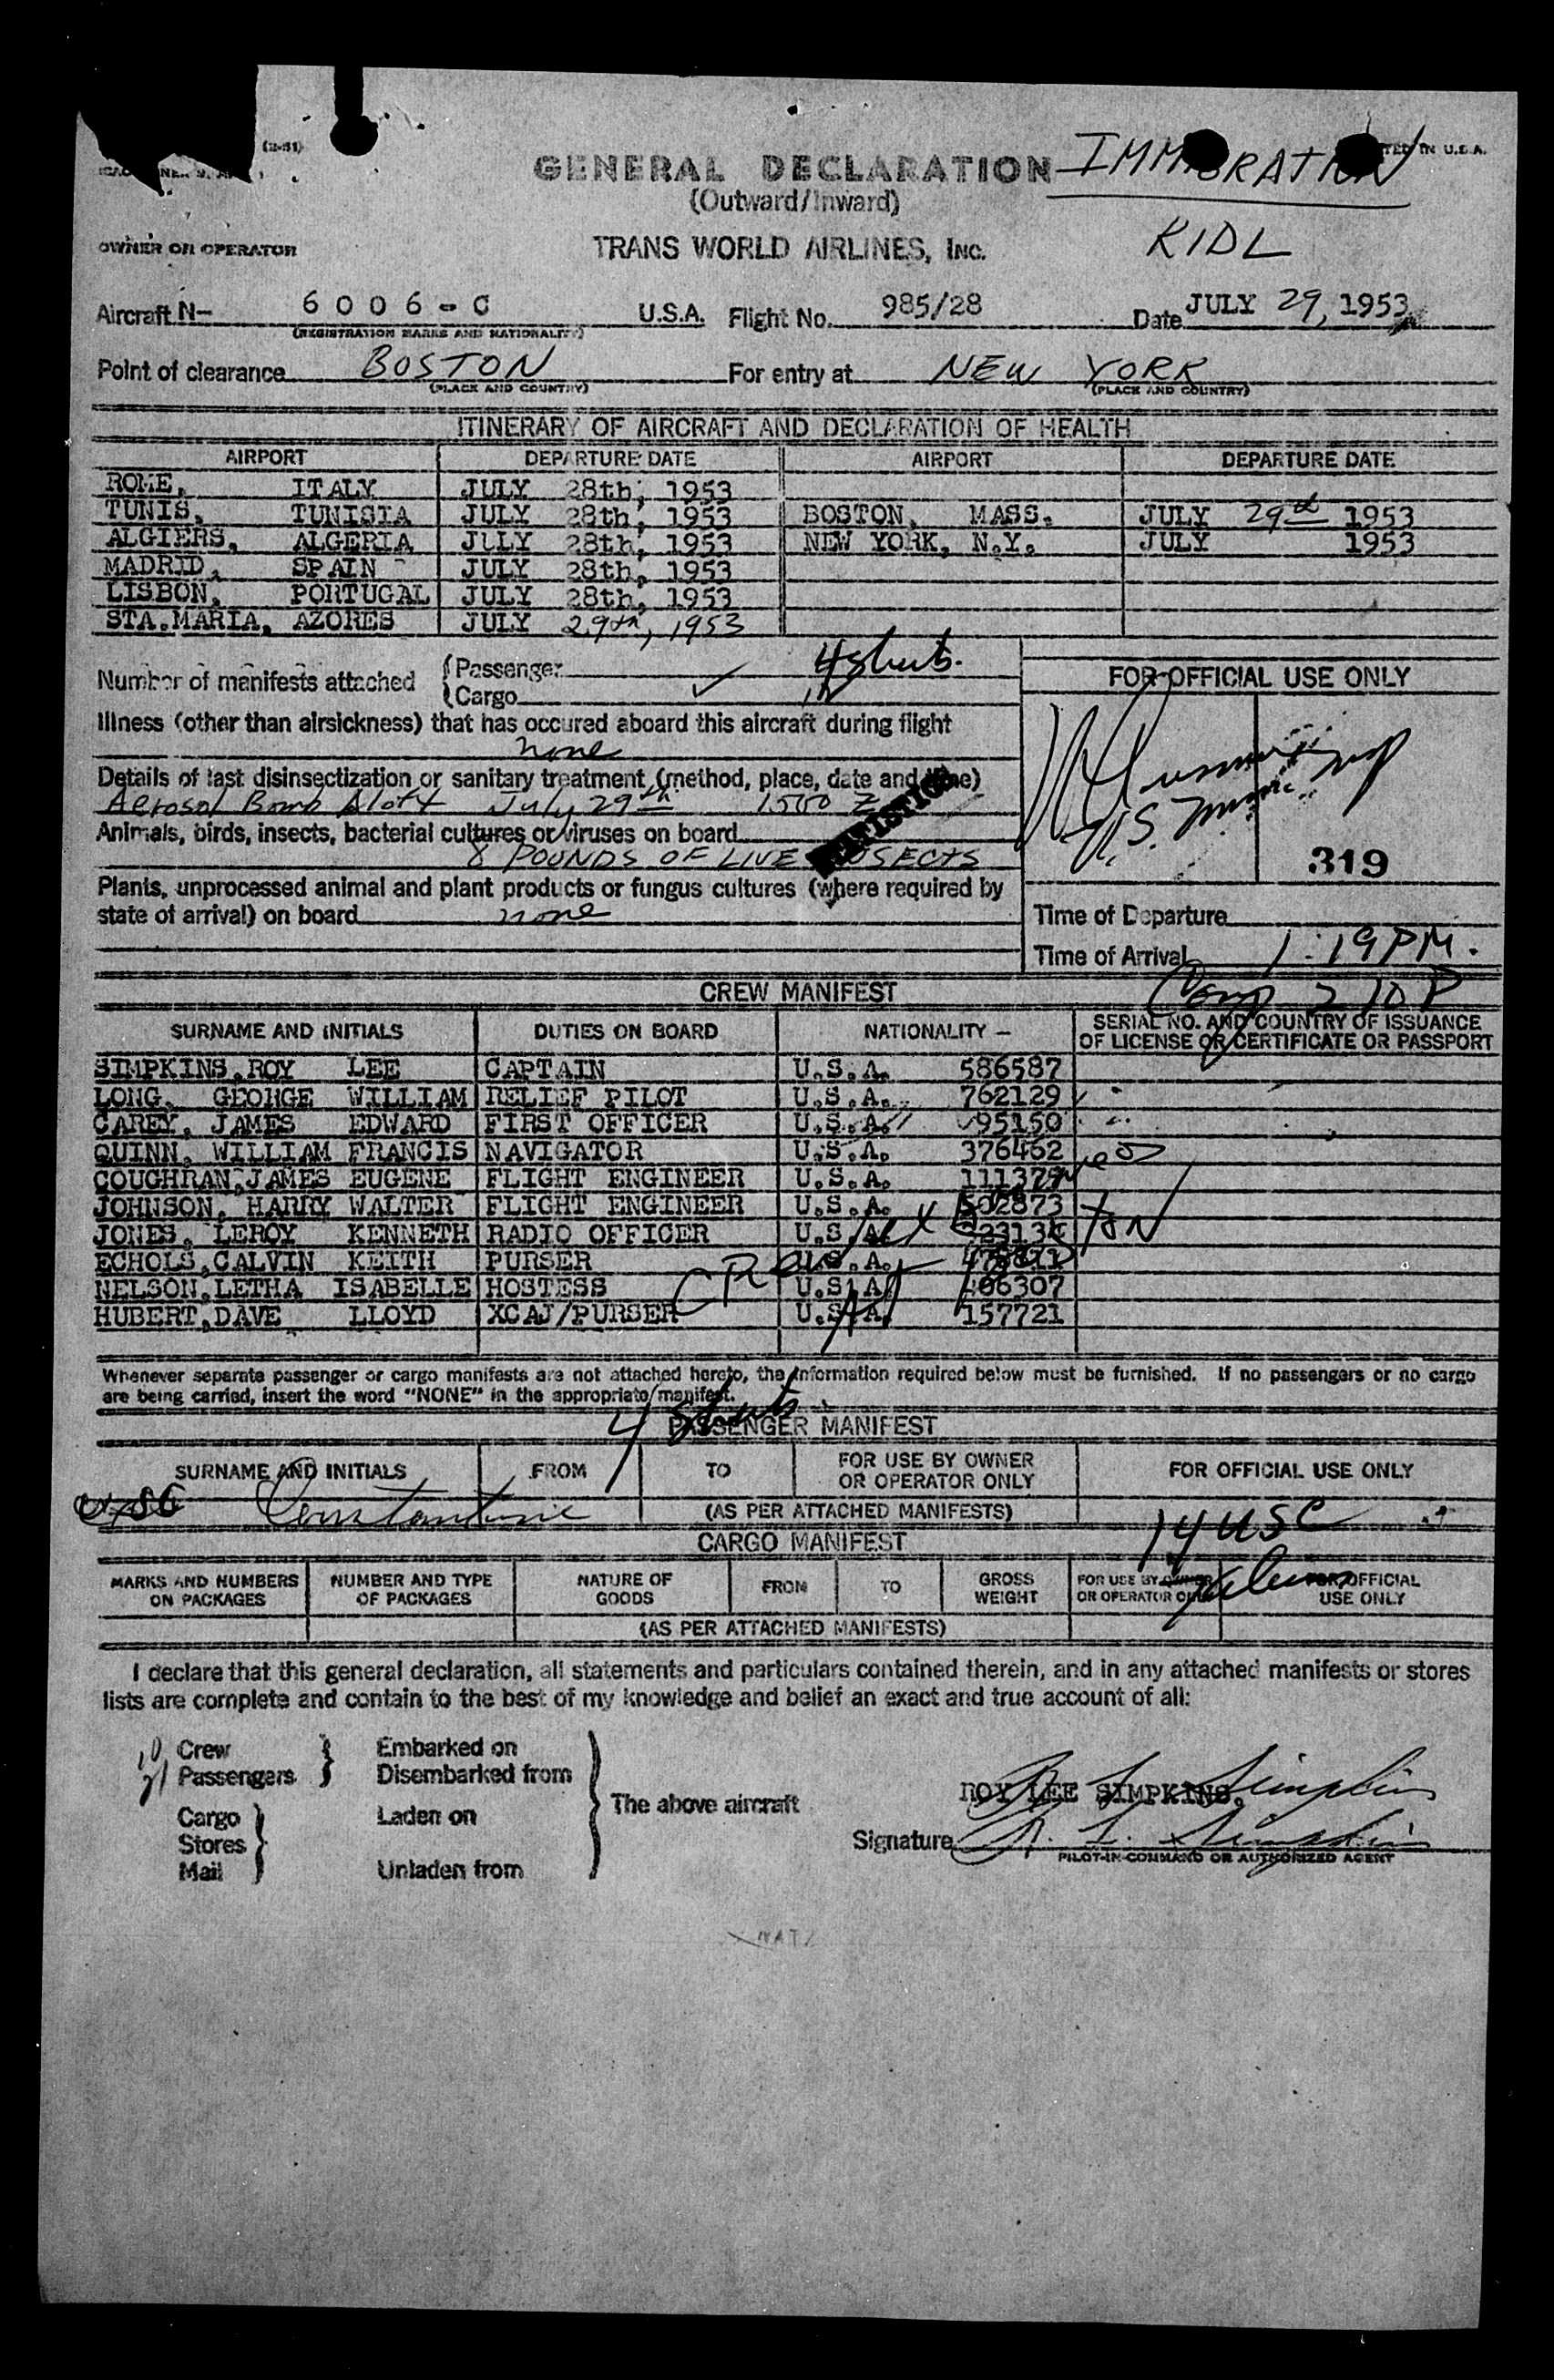 (2-51) PRINTED IN U.S.A.
GENERAL DECLARATION IMMIGRATION
(Outward/Inward)
KIDL
OWNER OR OPERATOR TRANS WORLD AIRLINES, INC.
Aircraft N- 6006-C U.S.A. Flight No. 985/28 Date JULY 29, 1953
(REGISTRATION MARKS AND NATIONALITY)
Point of clearance BOSTON For entry at NEW YORK
(PLACE AND COUNTRY) (PLACE AND COUNTRY)
ITINERARY OF AIRCRAFT AND DECLARATION OF HEALTH
AIRPORT DEPARTURE DATE AIRPORT DEPARTURE DATE
ROME, ITALY JULY 28th, 1953
TUNIS, TUNISIA JULY 28th, 1953 BOSTON, MASS. JULY 29th 1953
ALGIERS, ALGERIA JULY 28th, 1953 NEW YORK, N.Y. JULY 1953
MADRID, SPAIN JULY 28th, 1953
LISBON, PORTUGAL JULY 28th, 1953
STA.MARIA, AZORES JULY 29th, 1953
Number of manifests attached
(Passenger 4 sheets.
(Cargo
FOR OFFICIAL USE ONLY
Illness (other than airsickness) that has occured aboard this aircraft during flight
none
Details of last disinsectization or sanitary treatment (method, place, date and time)
Aerosol Bomb Aloft July 29th 1500 Z
Animals, birds, insects, bacterial cultures or viruses on board
8 POUNDS OF LIVE INSECTS
319
Plants, unprocessed animal and plant products or fungus cultures (where required by
state of arrival) on board none
Time of Departure
Time of Arrival 1:19 PM.
CREW MANIFEST
SURNAME AND INITIALS DUTIES ON BOARD NATIONALITY – SERIAL NO. AND COUNTRY OF ISSUANCE
OF LICENSE OR CERTIFICATE OR PASSPORT
SIMPKINS,ROY LEE CAPTAIN U.S.A. 586587
LONG, GEORGE WILLIAM RELIEF PILOT U.S.A. 762129
CAREY, JAMES EDWARD FIRST OFFICER U.S.A. 95150
QUINN, WILLIAM FRANCIS NAVIGATOR U.S.A. 376462
COUGHRAN,JAMES EUGENE FLIGHT ENGINEER U.S.A.
JOHNSON, HARRY WALTER FLIGHT ENGINEER U.S.A. 502873
JONES, LEROY KENNETH RADIO OFFICER U.S.A.
ECHOLS,CALVIN KEITH PURSER U.S.A.
NELSON,LETHA ISABELLE HOSTESS U.S.A.
HUBERT,DAVE LLOYD XCAJ/PURSER U.S.A. 157721
Whenever separate passenger or cargo manifests are not attached hereto, the information required below must be furnished. If no passengers or no cargo
are being carried, insert the word "NONE" in the appropriate manifest.
4 sheets
PASSENGER MANIFEST
SURNAME AND INITIALS FROM TO FOR USE BY OWNER
OR OPERATOR ONLY FOR OFFICIAL USE ONLY
(AS PER ATTACHED MANIFESTS) 14 USC
CARGO MANIFEST
MARKS AND NUMBERS
ON PACKAGES NUMBER AND TYPE
OF PACKAGES NATURE OF
GOODS FROM TO GROSS
WEIGHT FOR USE BY OWNER
OR OPERATOR ONLY FOR OFFICIAL
USE ONLY
(AS PER ATTACHED MANIFESTS)
I declare that this general declaration, all statements and particulars contained therein, and in any attached manifests or stores
lists are complete and contain to the best of my knowledge and belief an exact and true account of all:
10 Crew Embarked on
21 Passengers Disembarked from
Cargo Laden on
Stores
Mail Unladen from
The above aircraft
ROY LEE SIMPKINS.
Signature R. L. Simpkins
PILOT-IN-COMMAND OR AUTHORIZED AGENT